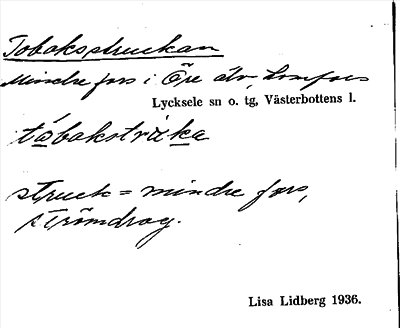 Tobaksstruckan
Mindre fors i Öre älv,
Lycksele sn o. tg, Västerbottens l.
struck = mindre fors,
strömdrag.
Lisa Lidberg 1936.